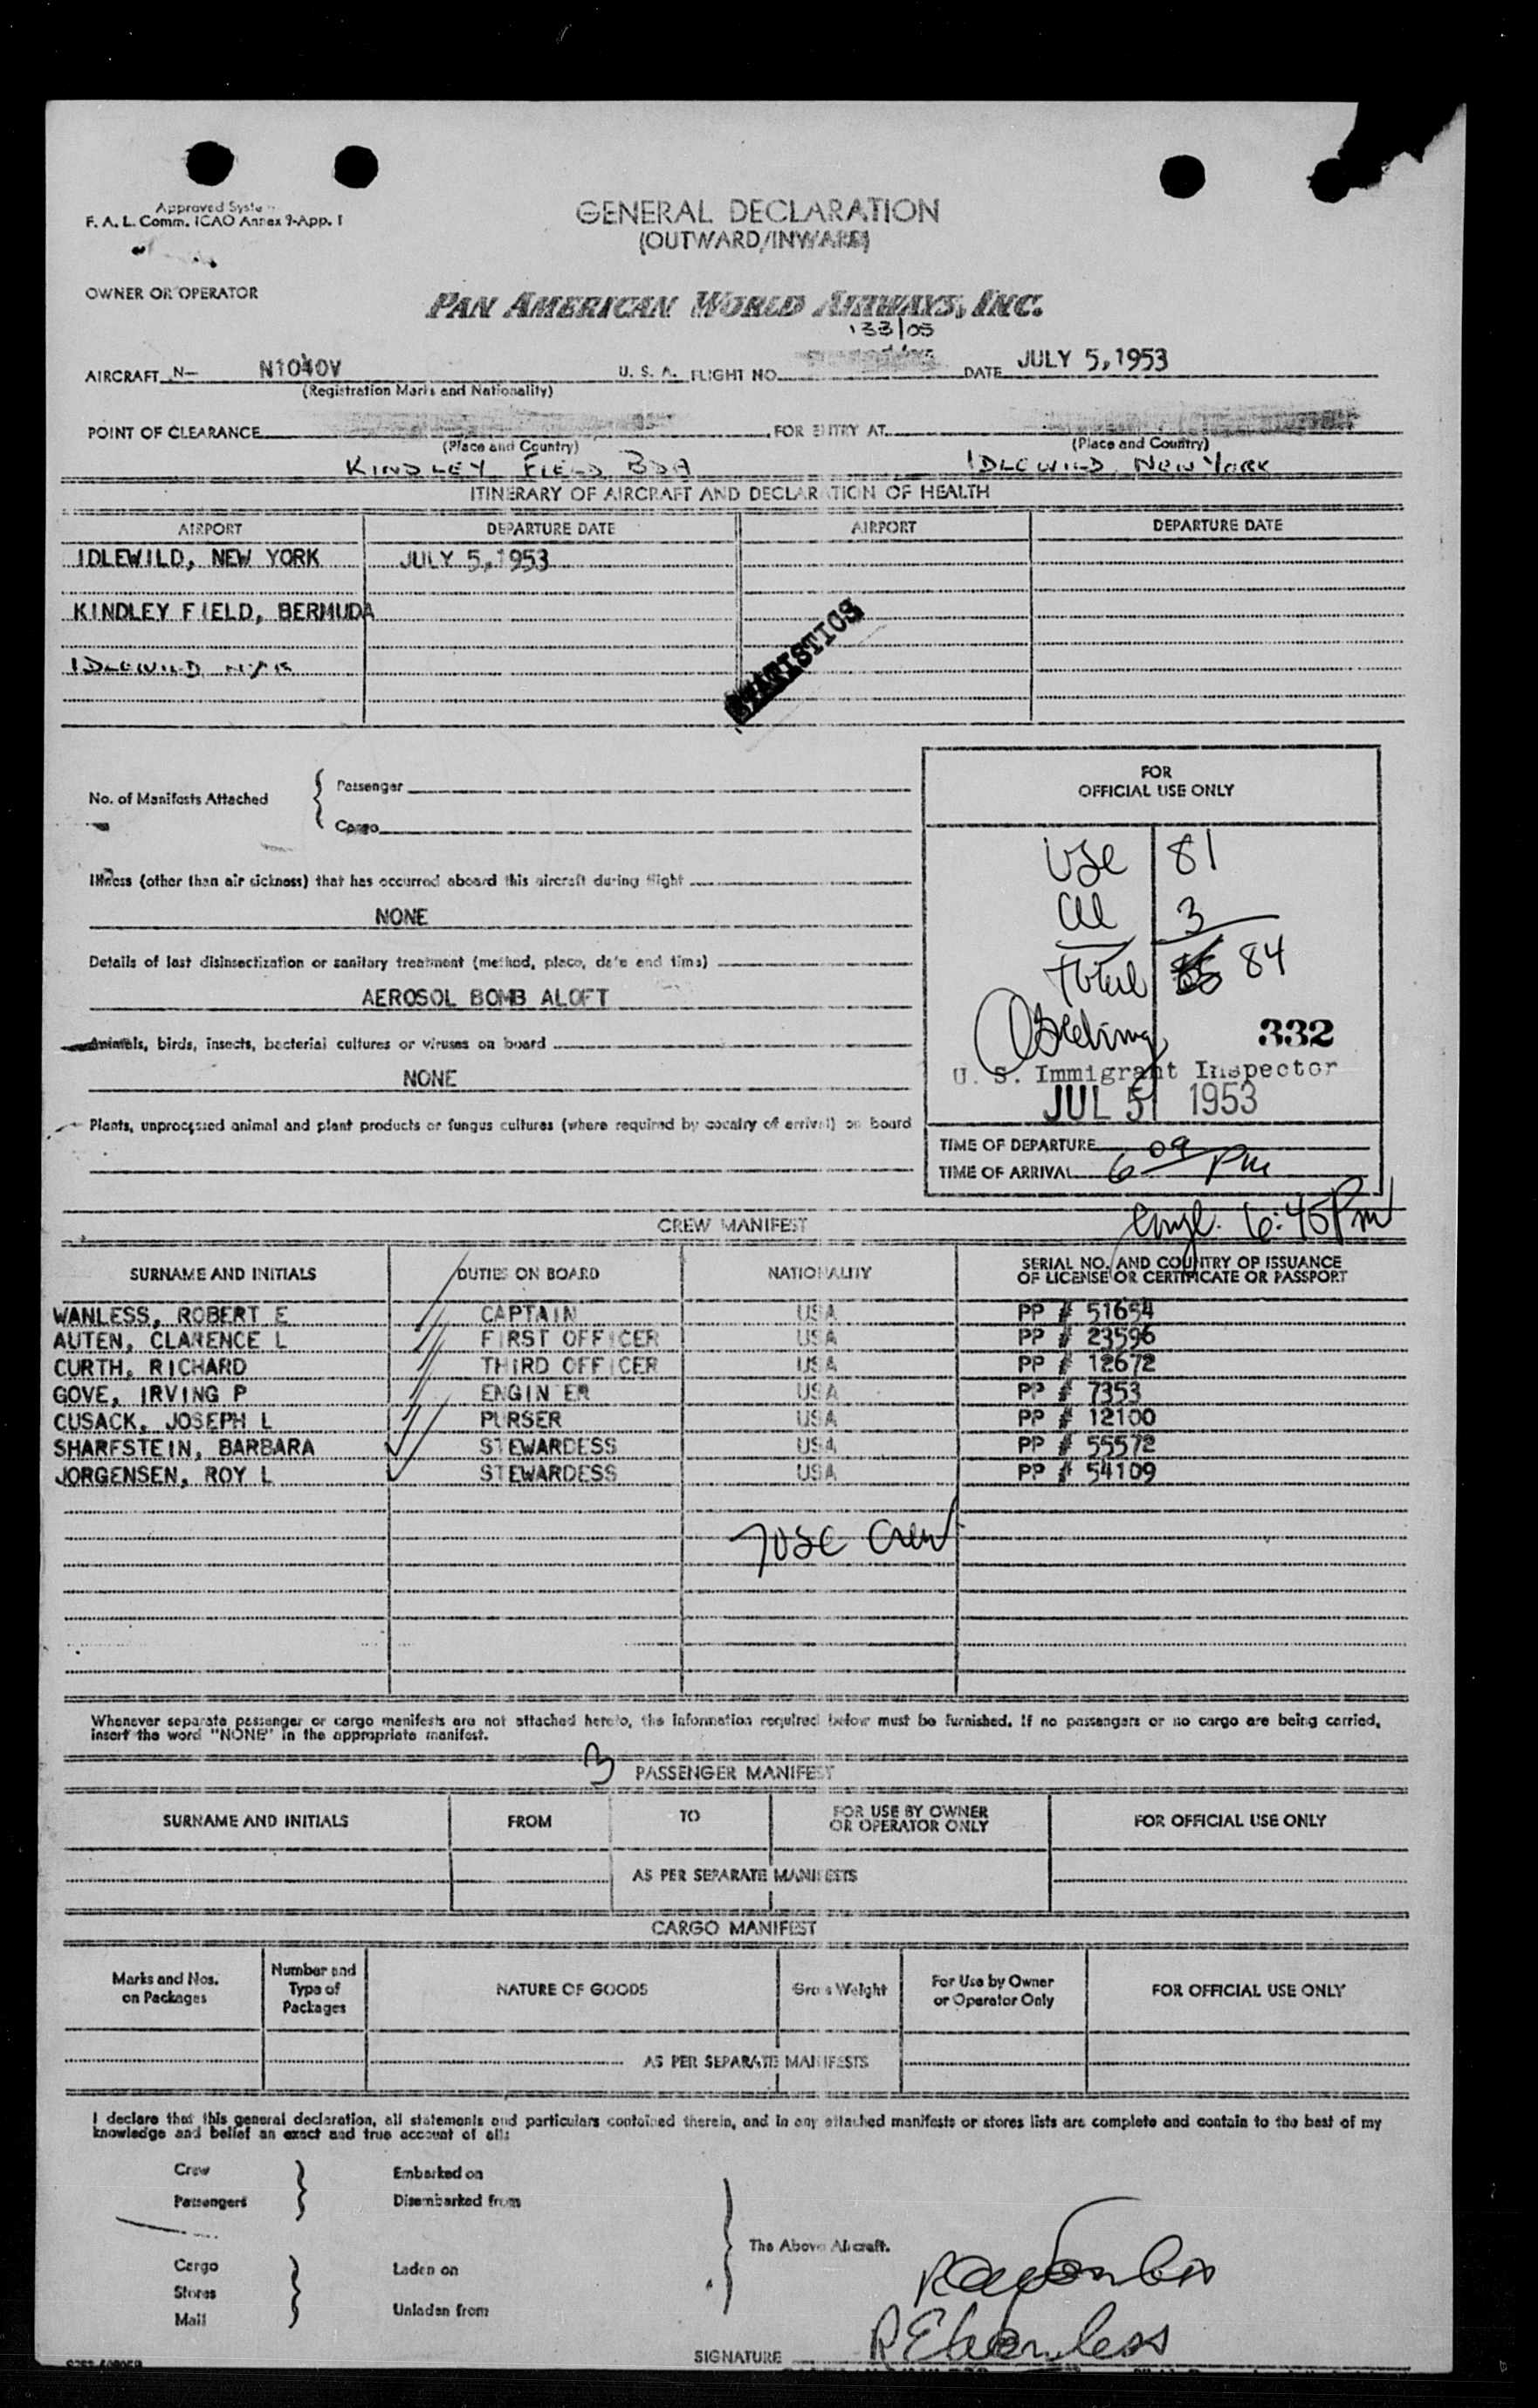 Approved System
F. A. L. Comm. ICAO Annex 9-App. 1
GENERAL DECLARATION
(OUTWARD/INWARD)
OWNER OR OPERATOR
PAN AMERICAN WORLD AIRWAYS, INC.
133/05
AIRCRAFT N- N1040V U. S. A. FLIGHT NO. DATE JULY 5, 1953
(Registration Marks and Nationality)
POINT OF CLEARANCE FOR ENTRY AT
(Place and Country) (Place and Country)
KINDLEY FIELD BDA IDLEWILD, NEW YORK
ITINERARY OF AIRCRAFT AND DECLARATION OF HEALTH
AIRPORT DEPARTURE DATE AIRPORT DEPARTURE DATE
IDLEWILD, NEW YORK JULY 5, 1953
KINDLEY FIELD, BERMUDA
IDLEWILD
STATISTICS
No. of Manifests Attached { Passenger
Cargo
FOR
OFFICIAL USE ONLY
USC 81
3
Total 84
332
U. S. Immigrant Inspector
JUL 5 1953
TIME OF DEPARTURE
TIME OF ARRIVAL 6 09 PM
6:45 PM
Illness (other than air sickness) that has occurred aboard this aircraft during flight
NONE
Details of last disinsectization or sanitary treatment (method, place, date and time)
AEROSOL BOMB ALOFT
Animals, birds, insects, bacterial cultures or viruses on board
NONE
Plants, unprocessed animal and plant products or fungus cultures (where required by country of arrival) on board
CREW MANIFEST
SURNAME AND INITIALS DUTIES ON BOARD NATIONALITY SERIAL NO. AND COUNTRY OF ISSUANCE
OF LICENSE OR CERTIFICATE OR PASSPORT
WANLESS, ROBERT E CAPTAIN USA PP # 51654
AUTEN, CLARENCE L FIRST OFFICER USA PP # 23596
CURTH, RICHARD THIRD OFFICER USA PP # 12672
GOVE, IRVING P ENGINEER USA PP # 7353
CUSACK, JOSEPH L PURSER USA PP # 12100
SHARFSTEIN, BARBARA STEWARDESS USA PP # 55572
JORGENSEN, ROY L STEWARDESS USA PP # 54109
7 USC Crew
Whenever separate passenger or cargo manifests are not attached hereto, the information required below must be furnished. If no passengers or no cargo are being carried,
insert the word "NONE" in the appropriate manifest.
3 PASSENGER MANIFEST
SURNAME AND INITIALS FROM TO FOR USE BY OWNER
OR OPERATOR ONLY FOR OFFICIAL USE ONLY
AS PER SEPARATE MANIFESTS
CARGO MANIFEST
Marks and Nos.
on Packages Number and
Type of
Packages NATURE OF GOODS Gross Weight For Use by Owner
or Operator Only FOR OFFICIAL USE ONLY
AS PER SEPARATE MANIFESTS
I declare that this general declaration, all statements and particulars contained therein, and in any attached manifests or stores lists are complete and contain to the best of my
knowledge and belief an exact and true account of all:
Crew Embarked on
Passengers Disembarked from
The Above Aircraft.
Cargo Laden on
Stores
Mail Unladen from
SIGNATURE R E Wanless